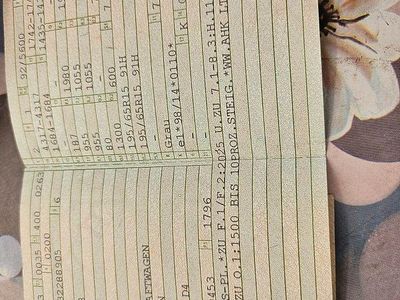 0035 400 0265 2 1 92/5600
0200 4317-4317 1742-17
32288905 6 1684-1684 1435-14
- -
1980
187 1055
955 1055
955 -
80 600/
1300
195/65R15 91H
195/65R15 91H
AFTWAGEN -
Grau
e1*98/14*0110*
D4 K
453 1796
S-PL.*ZU F.1/F.2:2025 U.ZU 7.1-8.3:H.11
ZU O.1:1500 BIS 10PROZ.STEIG.*WW.AHK LT